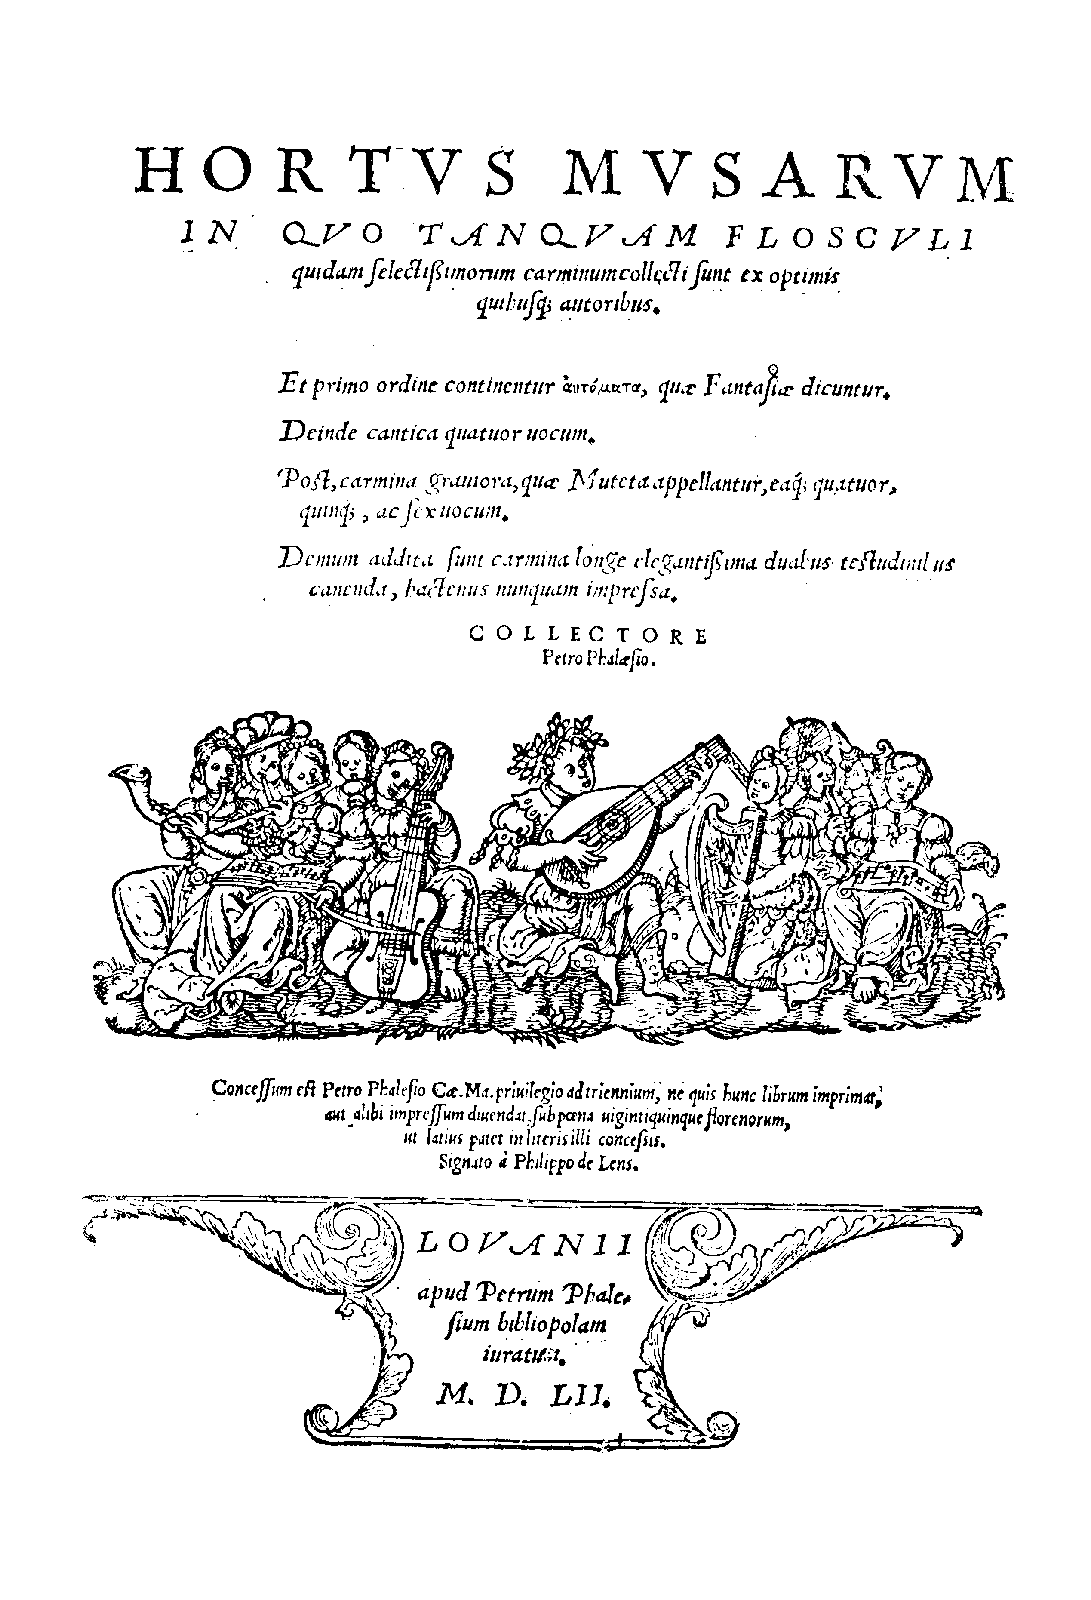 HORTVS MVSARVM
IN QVO TANQVAM FLOSCVLI
quidam ſelectißimorum carminum collecti ſunt ex optimis
quibuſq; autoribus.
Et primo ordine continentur ἀυτόματα, quæ Fantaſiæ dicuntur.
Deinde cantica quatuor uocum.
Poſt, carmina grauiora, quæ Muteta appellantur, eaq; quatuor,
quinq; , ac ſex uocum.
Demum addita ſunt carmina longe elegantißima duabus teſtudinibus
canenda, hactenus nunquam impreſſa.
COLLECTORE
Petro Phalæſio.
Conceſſum eſt Petro Phaleſio Cæ. Ma. priuilegio ad triennium, ne quis hunc librum imprimat,
aut alibi impreſſum diuendat, ſub pœna uigintiquinque florenorum,
ut latius patet in literis illi conceſsis.
Signato à Philippo de Lens.
LOVANII
apud Petrum Phale,
ſium bibliopolam
iuratum.
M. D. LII.